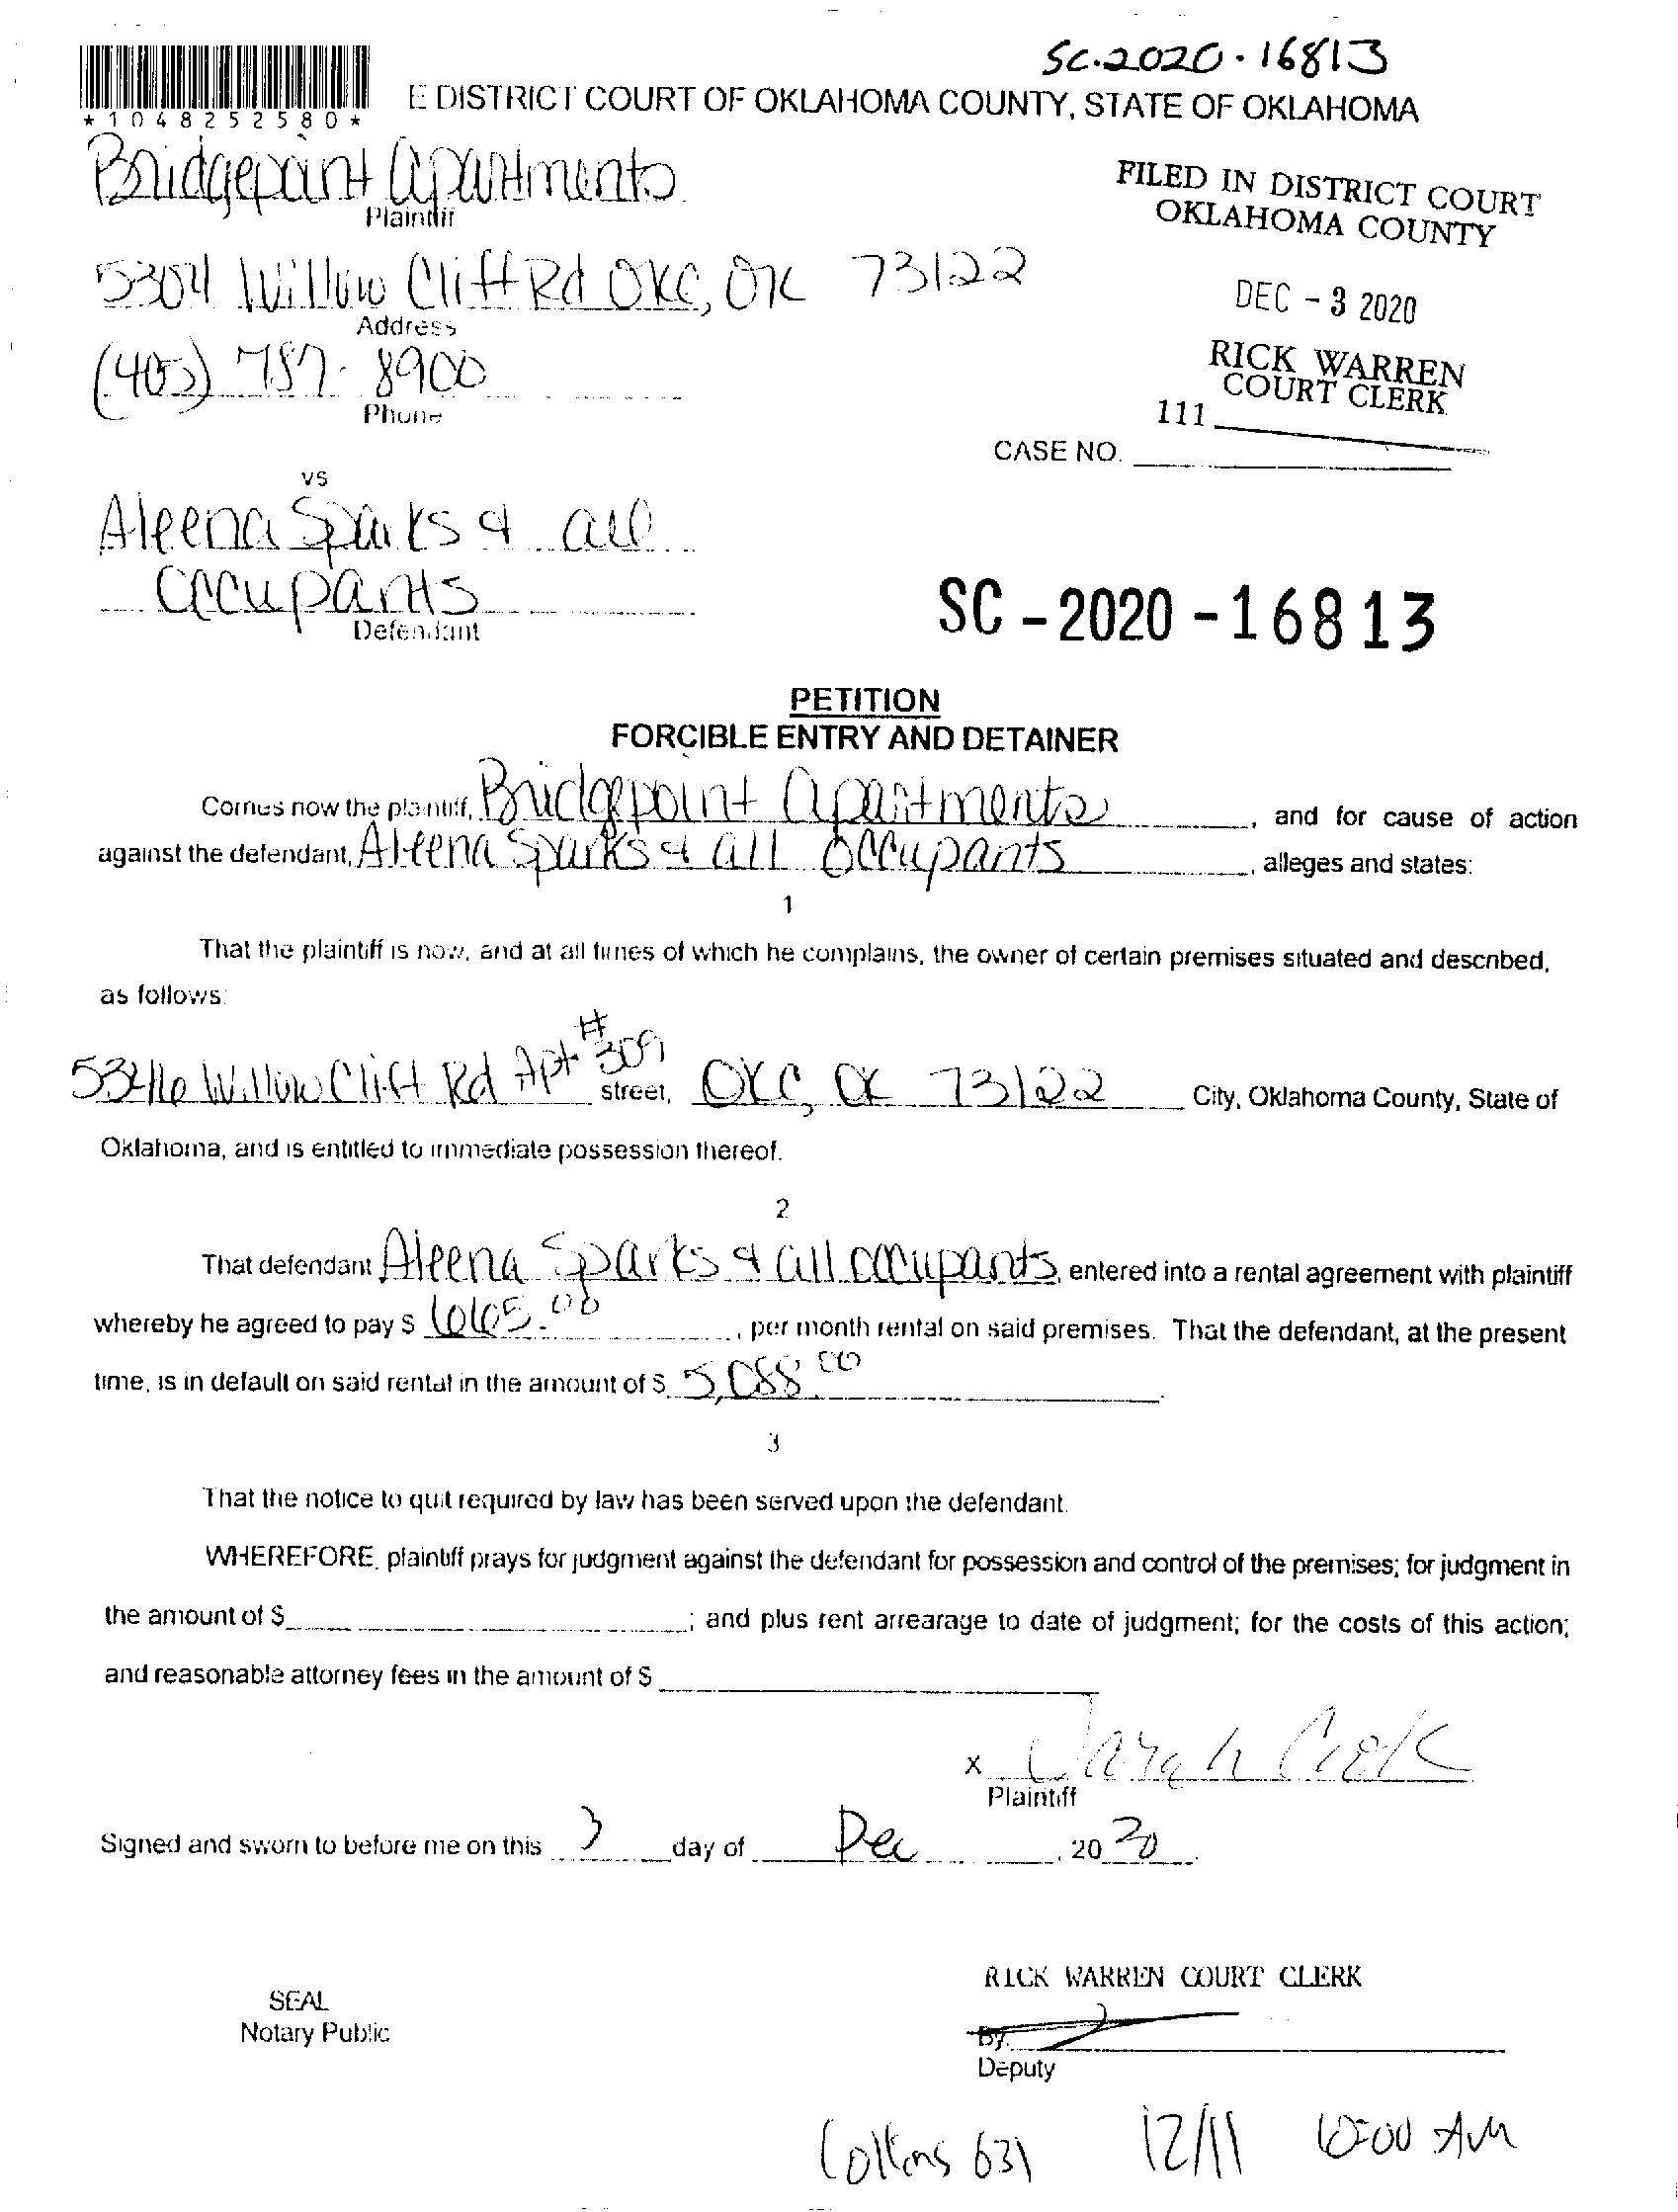 SC-2020-16813
*1048252580*
E DISTRICT COURT OF OKLAHOMA COUNTY, STATE OF OKLAHOMA
Bridgepoint Apartments
Plaintiff
FILED IN DISTRICT COURT
OKLAHOMA COUNTY
5304 Willow Cliff Rd OKC, OK 73122
Address
DEC - 3 2020
(405) 787-8900
Phone
RICK WARREN
COURT CLERK
111
CASE NO.
vs
Aleena Sparks & all
occupants
Defendant
SC-2020-16813
PETITION
FORCIBLE ENTRY AND DETAINER
Comes now the plaintiff, Bridgepoint Apartments, and for cause of action
against the defendant, Aleena Sparks & all occupants, alleges and states:
1
That the plaintiff is now, and at all times of which he complains, the owner of certain premises situated and described,
as follows:
Willow Cliff Rd Apt #309 street, OKC, OK 73122 City, Oklahoma County, State of
Oklahoma, and is entitled to immediate possession thereof.
2
That defendant Aleena Sparks & all occupants, entered into a rental agreement with plaintiff
whereby he agreed to pay $ 665.00, per month rental on said premises. That the defendant, at the present
time, is in default on said rental in the amount of $ 5,088.00.
3
That the notice to quit required by law has been served upon the defendant.
WHEREFORE, plaintiff prays for judgment against the defendant for possession and control of the premises; for judgment in
the amount of $ ; and plus rent arrearage to date of judgment; for the costs of this action;
and reasonable attorney fees in the amount of $
x Sarah Cook
Plaintiff
Signed and sworn to before me on this 3 day of Dec, 2020.
RICK WARREN COURT CLERK
SEAL
Notary Public
By.
Deputy
Collins 631 12/11 10:00 AM